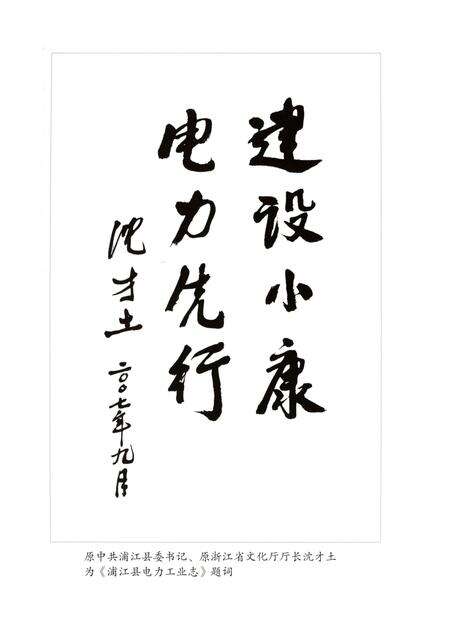 建设小康
电力先行
沈才土
二〇〇七年九月
原中共浦江县委书记、原浙江省文化厅厅长沈才土
为《浦江县电力工业志》题词